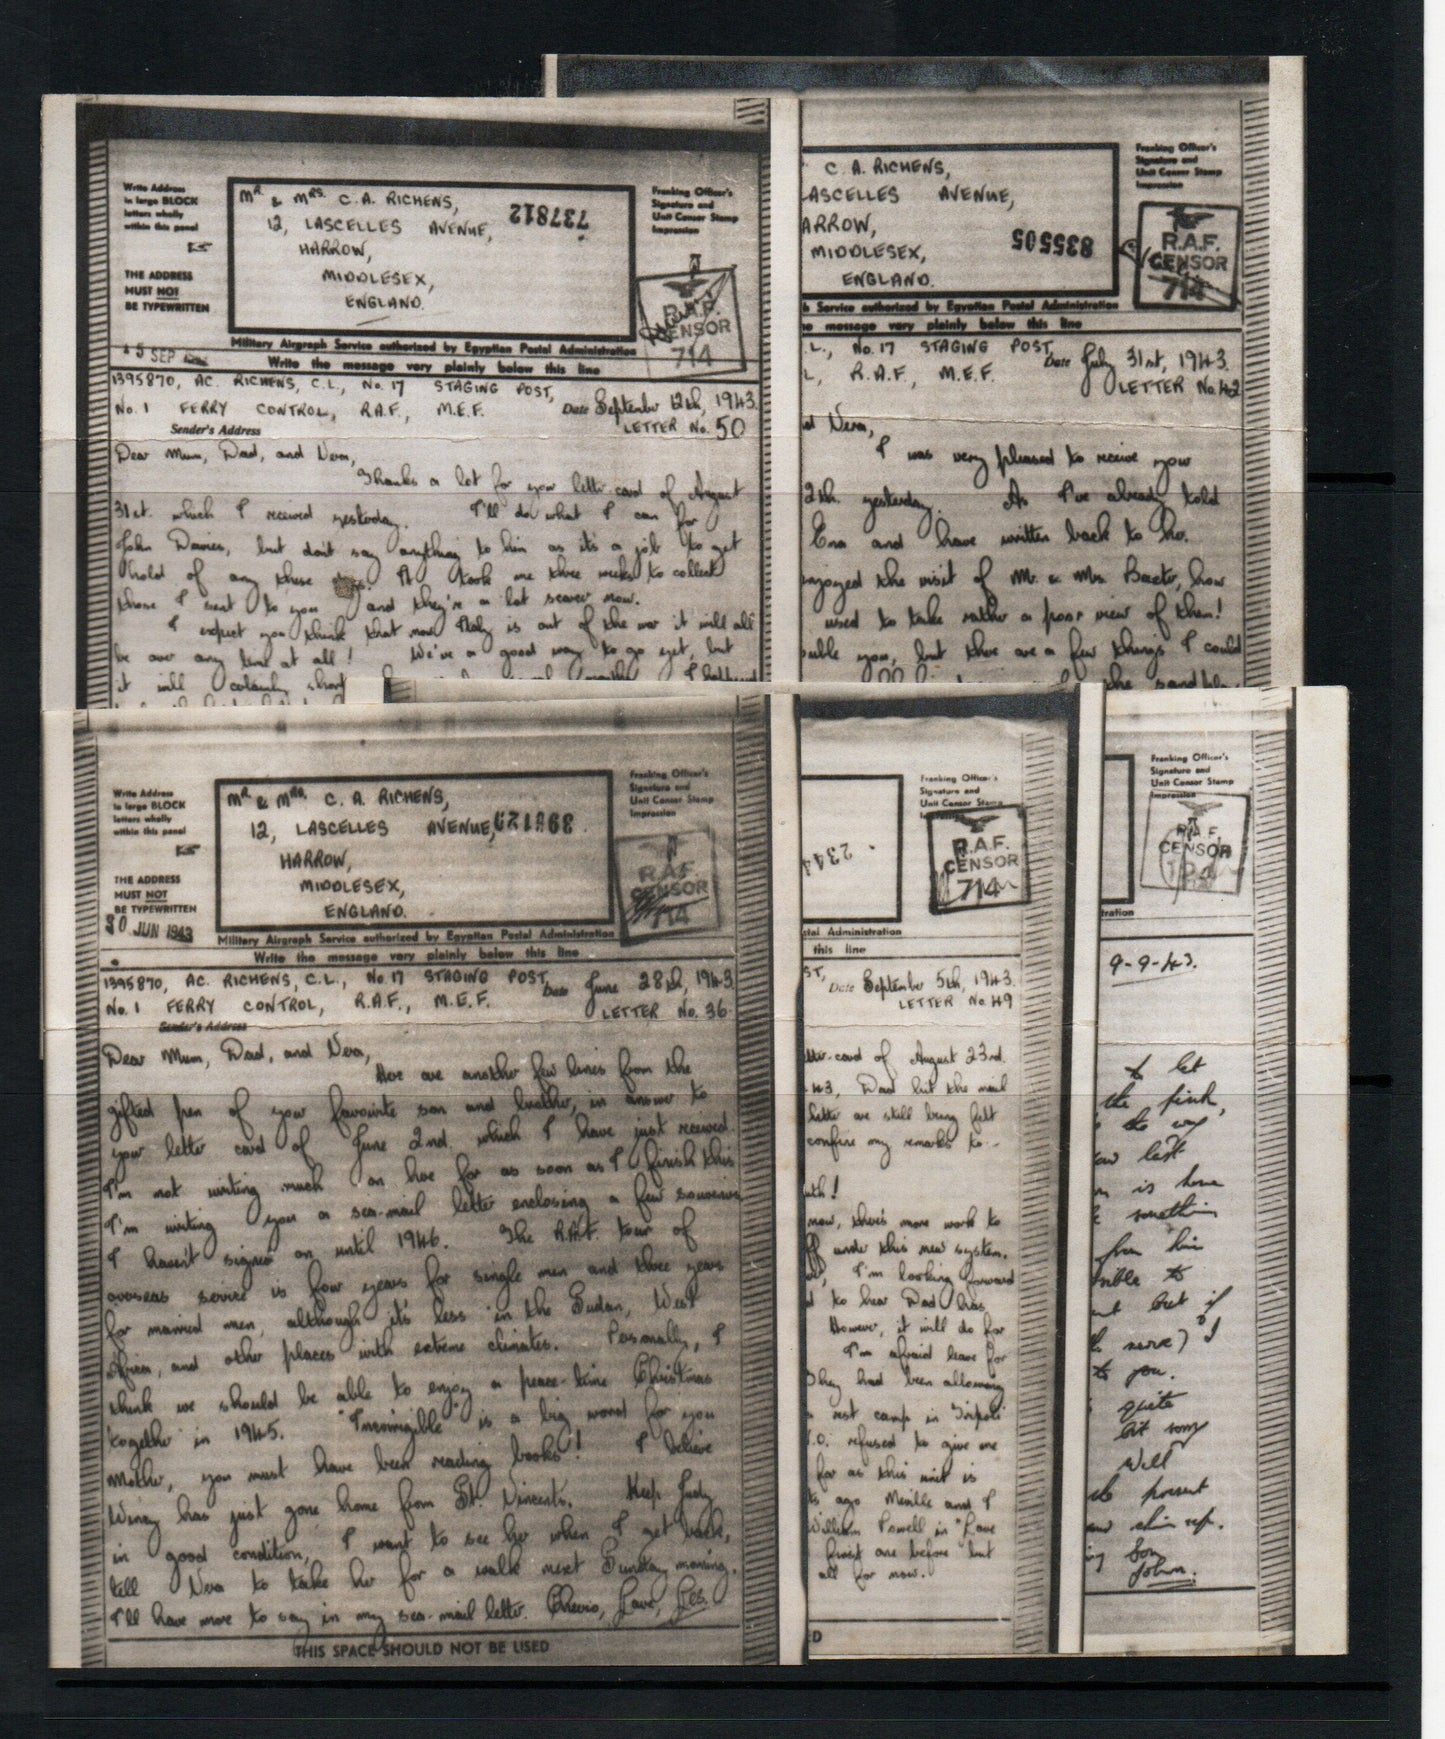 Write Address
in large BLOCK
letters wholly
within this panel
THE ADDRESS
MUST NOT
BE TYPEWRITTEN
MR. & MRS. C. A. RICHENS,
12, LASCELLES AVENUE,
HARROW,
MIDDLESEX,
ENGLAND.
737812
Franking Officer's
Signature and
Unit Censor Stamp
Impression
R.A.F.
CENSOR
714
15 SEP
Military Airgraph Service authorized by Egyptian Postal Administration
Write the message very plainly below this line
1395870, AC. RICHENS, C.L., No. 17 STAGING POST,
No. 1 FERRY CONTROL, R.A.F., M.E.F. Date September 12th, 1943.
Sender's Address LETTER No. 50
Dear Mum, Dad, and Vera,
Thanks a lot for your letter card of August
31st. which I received yesterday. I'll do what I can for
John Davies, but don't say anything to him as it's a job to get
hold of any these It took me three weeks to collect
those I sent to you and they're a lot scarcer now.
I expect you think that now Italy is out of the war it will all
be over any time at all! We've a good way to go yet, but
it will certainly short
C. A. RICHENS,
ASCELLES AVENUE,
ARROW,
MIDDLESEX,
ENGLAND.
835505
Franking Officer's
Signature and
Unit Censor Stamp
Impression
R.A.F.
CENSOR
714
h Service authorized by Egyptian Postal Administration
he message very plainly below this line
.L., No. 17 STAGING POST,
L, R.A.F., M.E.F. Date July 31st, 1943.
LETTER No. 42
d Vera,
I was very pleased to receive your
2th. yesterday. As I've already told
Ena and have written back to her.
njoyed the visit of Mr. & Mrs. Baxter, how
used to take rather a poor view of them!
ouble you, but there are a few things I could
Write Address
in large BLOCK
letters wholly
within this panel
THE ADDRESS
MUST NOT
BE TYPEWRITTEN
30 JUN 1943
MR. & MRS. C. A. RICHENS,
12, LASCELLES AVENUE,
HARROW,
MIDDLESEX,
ENGLAND.
Franking Officer's
Signature and
Unit Censor Stamp
Impression
R.A.F.
CENSOR
714
Military Airgraph Service authorized by Egyptian Postal Administration
Write the message very plainly below this line
1395870, AC. RICHENS, C.L., No. 17 STAGING POST,
No. 1 FERRY CONTROL, R.A.F., M.E.F. Date June 28th, 1943.
Sender's Address LETTER No. 36
Dear Mum, Dad, and Vera,
Here are another few lines from the
gifted pen of your favourite son and brother, in answer to
your letter card of June 2nd. which I have just received.
I'm not writing much on here for as soon as I finish this
I'm writing you a sea-mail letter enclosing a few souvenirs
I haven't signed on until 1946. The R.A.F. tour of
overseas service is four years for single men and three years
for married men, although it's less in the Sudan, West
Africa, and other places with extreme climates. Personally, I
think we should be able to enjoy a peace-time Christmas
together in 1945. "Incorrigible" is a big word for you
Mother, you must have been reading books! I believe
Winny has just gone home from St. Vincents. Keep Judy
in good condition, I want to see her when I get back,
tell Vera to take her for a walk next Sunday morning.
I'll have more to say in my sea-mail letter. Cheerio, Love, Les.
THIS SPACE SHOULD NOT BE USED
Franking Officer's
Signature and
Unit Censor Stamp
R.A.F.
CENSOR
714
2344
stal Administration
this line
ST, Date September 5th, 1943.
LETTER No. 49
tter-card of August 23rd.
43, Dad but the mail
letter are still being felt
confine my remarks to --
uth!
now, there's more work to
ff under this new system.
I'm looking forward
d to hear Dad has
However, it will do for
I'm afraid leave for
They had been allowing
a rest camp in Tripoli
C.O. refused to give me
for as this unit is
ks ago Melville and I
William Powell in "Love
first one before but
all for now.
ED
Franking Officer's
Signature and
Unit Censor Stamp
Impression
R.A.F.
CENSOR
tration
9-9-43.
to let
the pink,
the way
last
is home
something
from him
sible to
but if
serve) I
to you.
quite
at
Will
the present
Son
John.